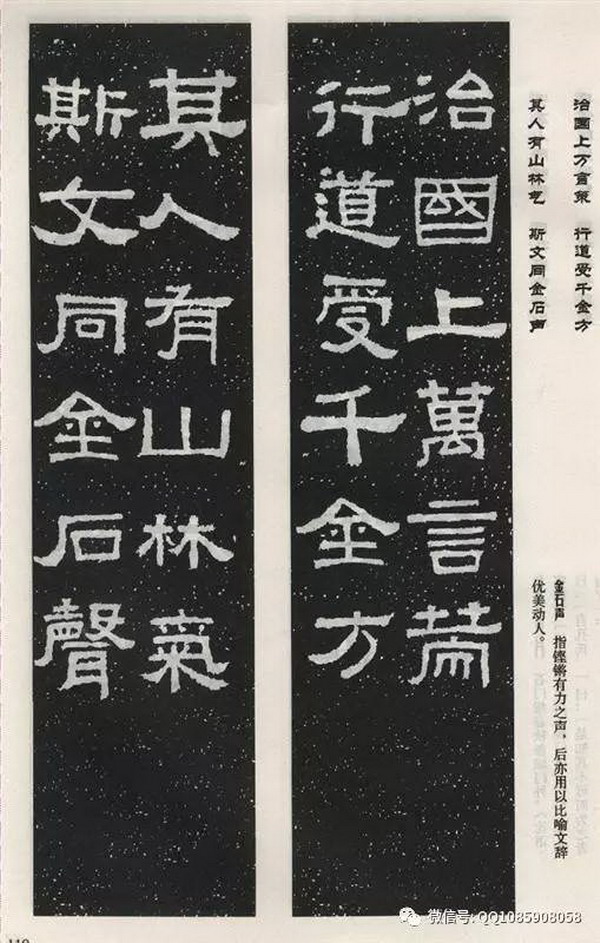 治国上万言策 行道受千金方
其人有山林气 斯文同金石声
金石声 指铿锵有力之声，后亦用以比喻文辞
优美动人。
治國上萬言策
行道受千金方
其人有山林氣
斯文同金石聲
微信号: QQ1085908058